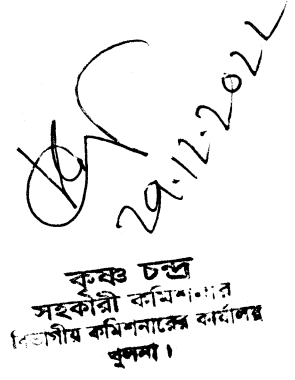 29.12.2022
কৃষ্ণ চন্দ্র
সহকারী কমিশনার
বিভাগীয় কমিশনারের কার্যালয়
খুলনা।